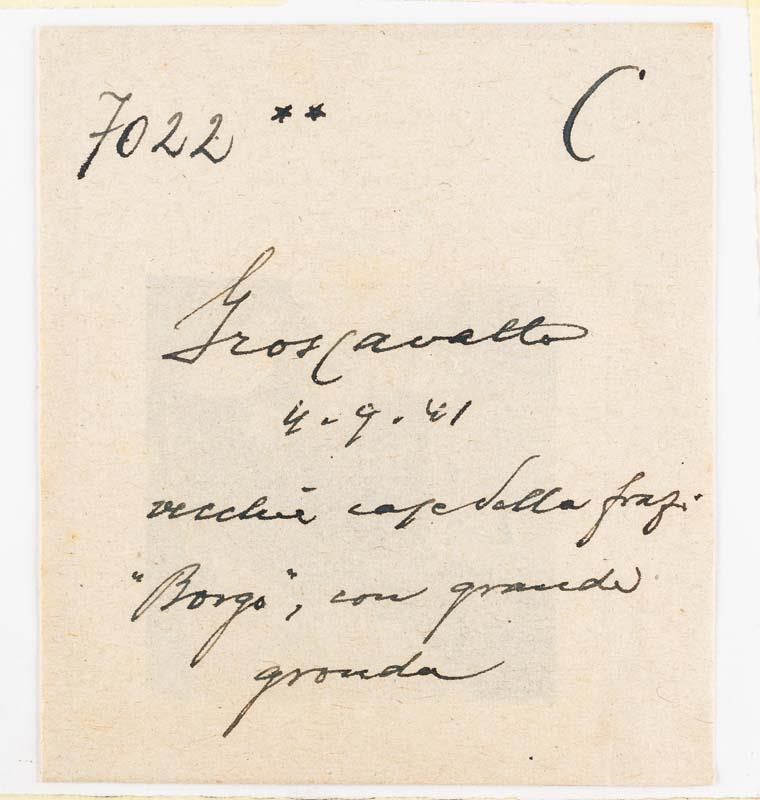 7022 ** C
Groscavallo
4-9.41
vecchie case della fraz.
"Borgo", con grande
gronda